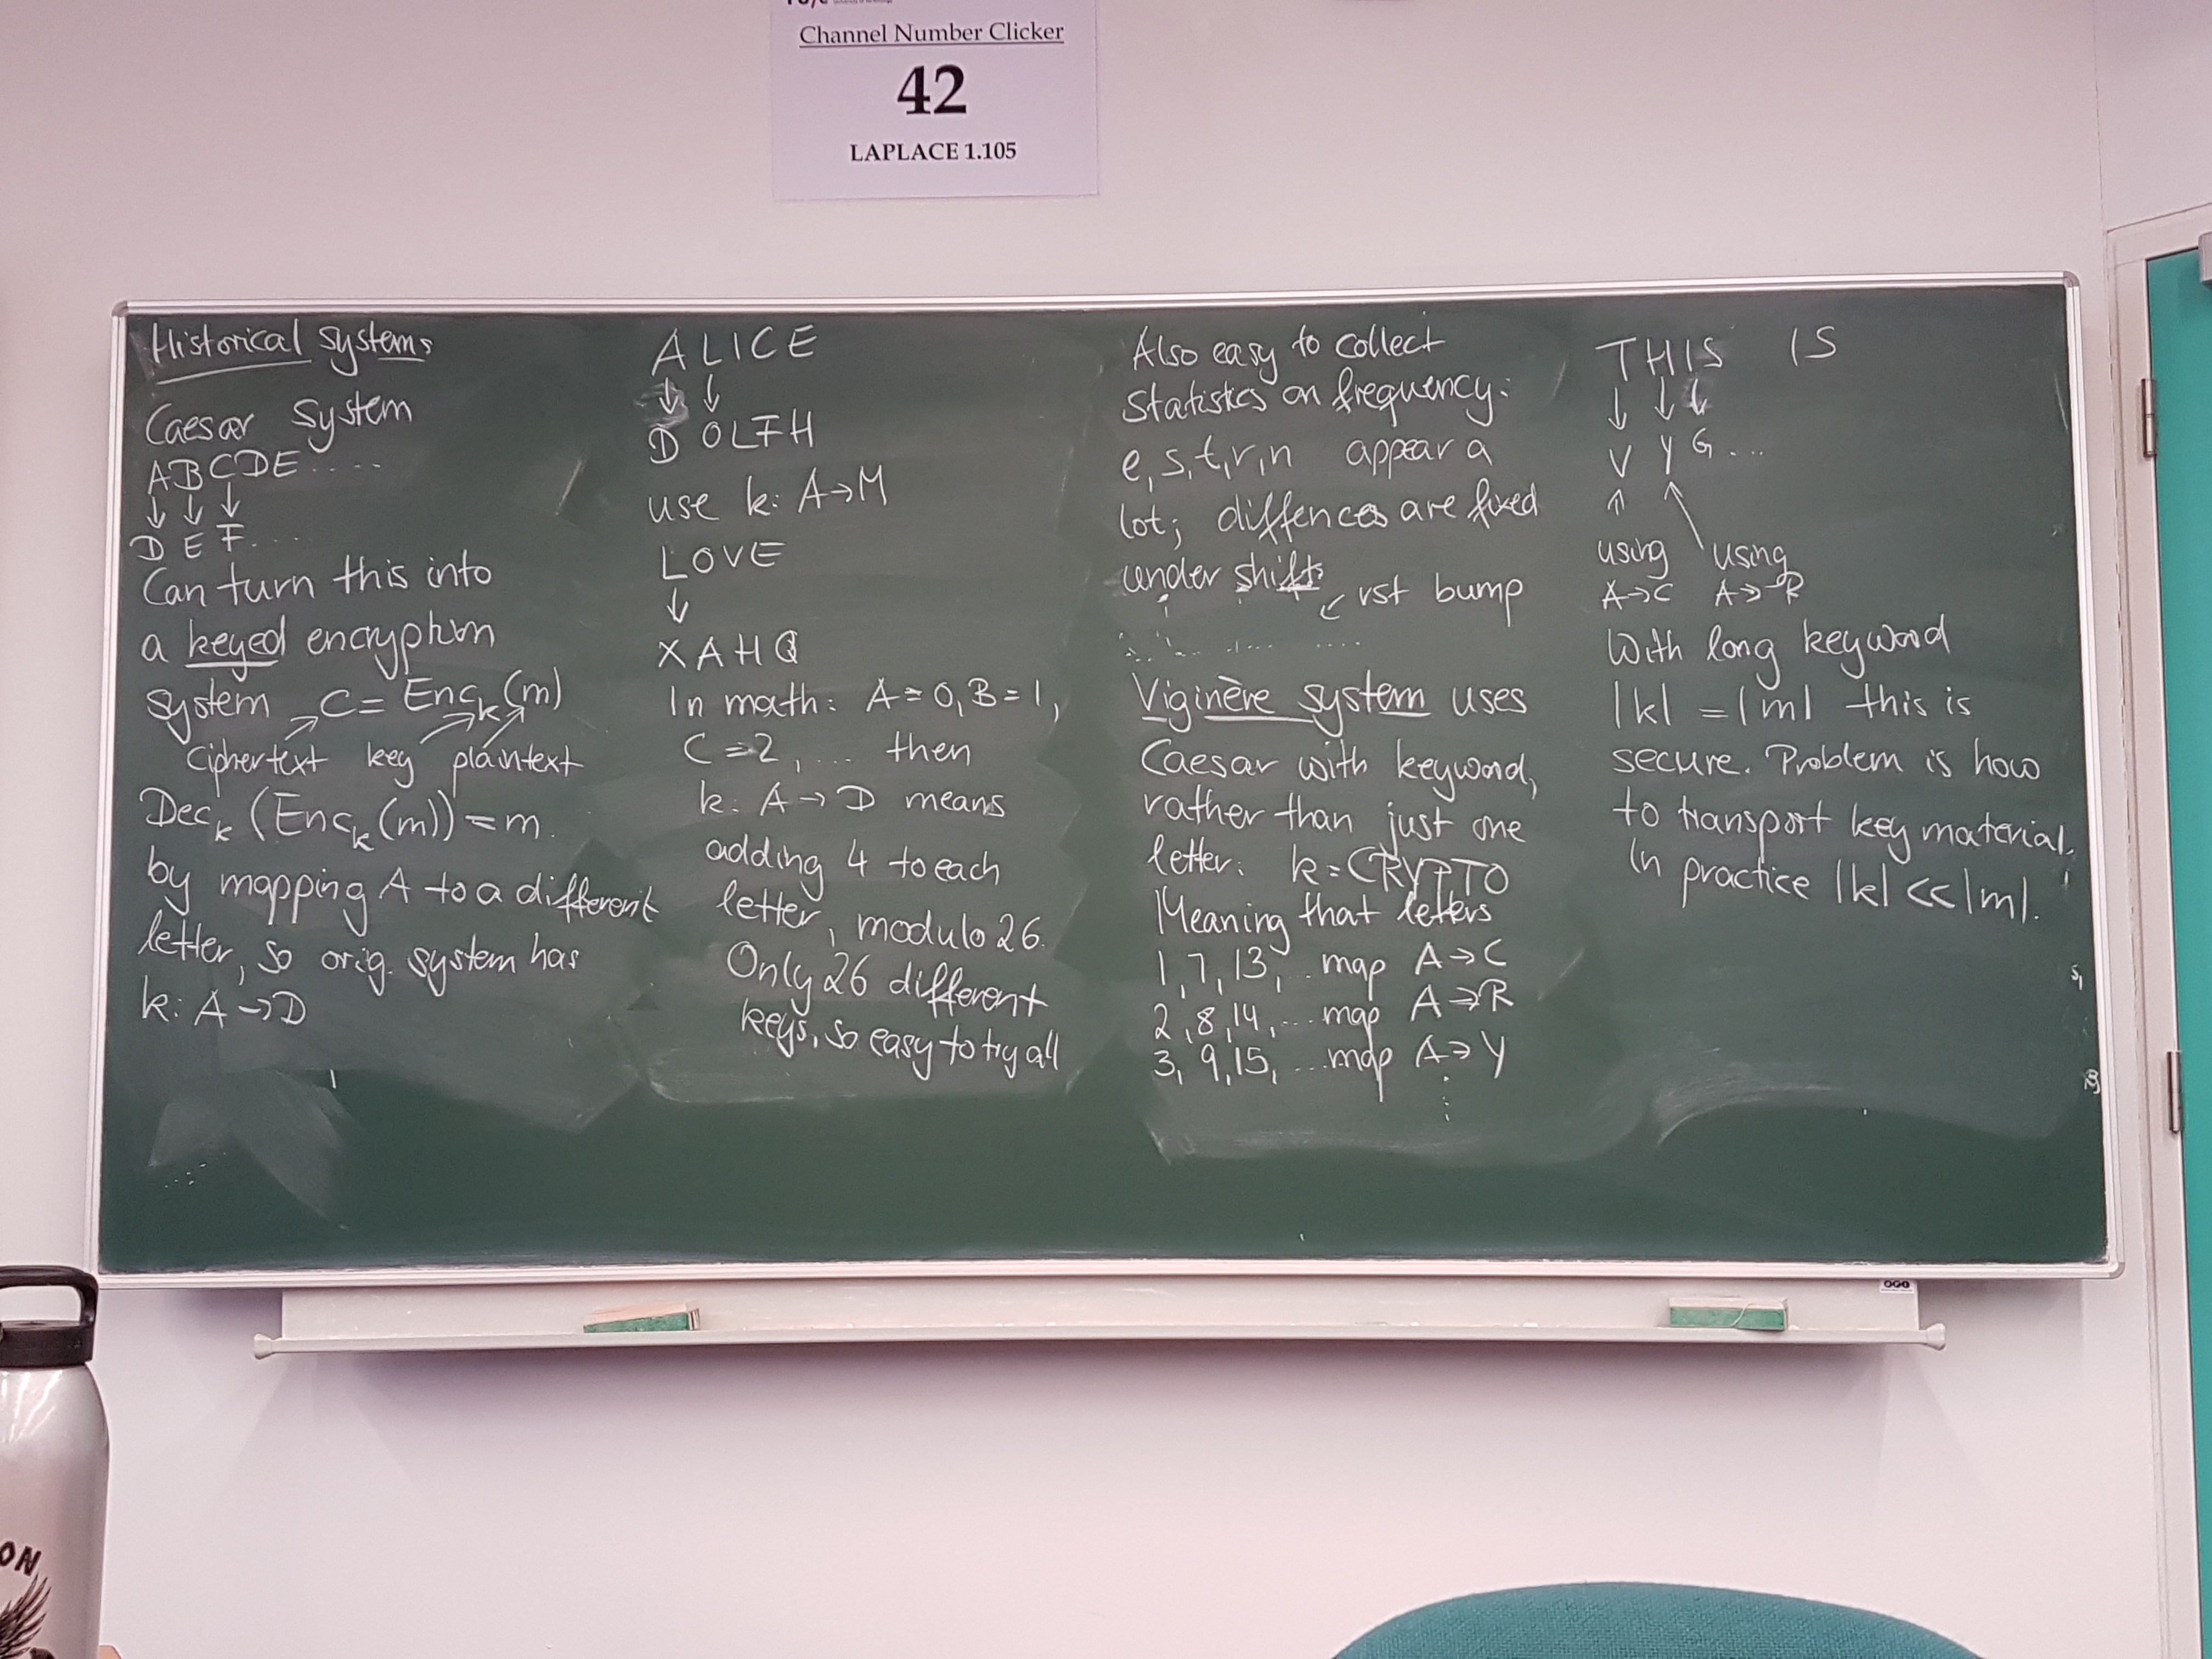 Channel Number Clicker
42
LAPLACE 1.105
Historical systems
Caesar system
ABCDE....
↓ ↓ ↓
D E F....
Can turn this into
a keyed encryption
system C = Enc_k(m)
ciphertext key plaintext
Dec_k (Enc_k(m)) = m.
by mapping A to a different
letter, so orig. system has
k: A → D
ALICE
↓ ↓
D OLFH
use k: A→M
LOVE
↓
XAHQ
In math: A = 0, B = 1,
C = 2, ... then
k: A → D means
adding 4 to each
letter, modulo 26.
Only 26 different
keys, so easy to try all
Also easy to collect
statistics on frequency:
e, s, t, r, n appear a
lot; diffences are fixed
under shifts
↙ rst bump
Viginère system uses
Caesar with keyword,
rather than just one
letter: k = CRYPTO
Meaning that letters
1, 7, 13, ... map A → C
2, 8, 14, ... map A → R
3, 9, 15, ... map A → Y
⋮
THIS IS
↓ ↓ ↓
V Y G ...
↑ ↖
using using
A→C A→R
With long keyword
|k| = |m| this is
secure. Problem is how
to transport key material.
In practice |k| << |m|.
ON